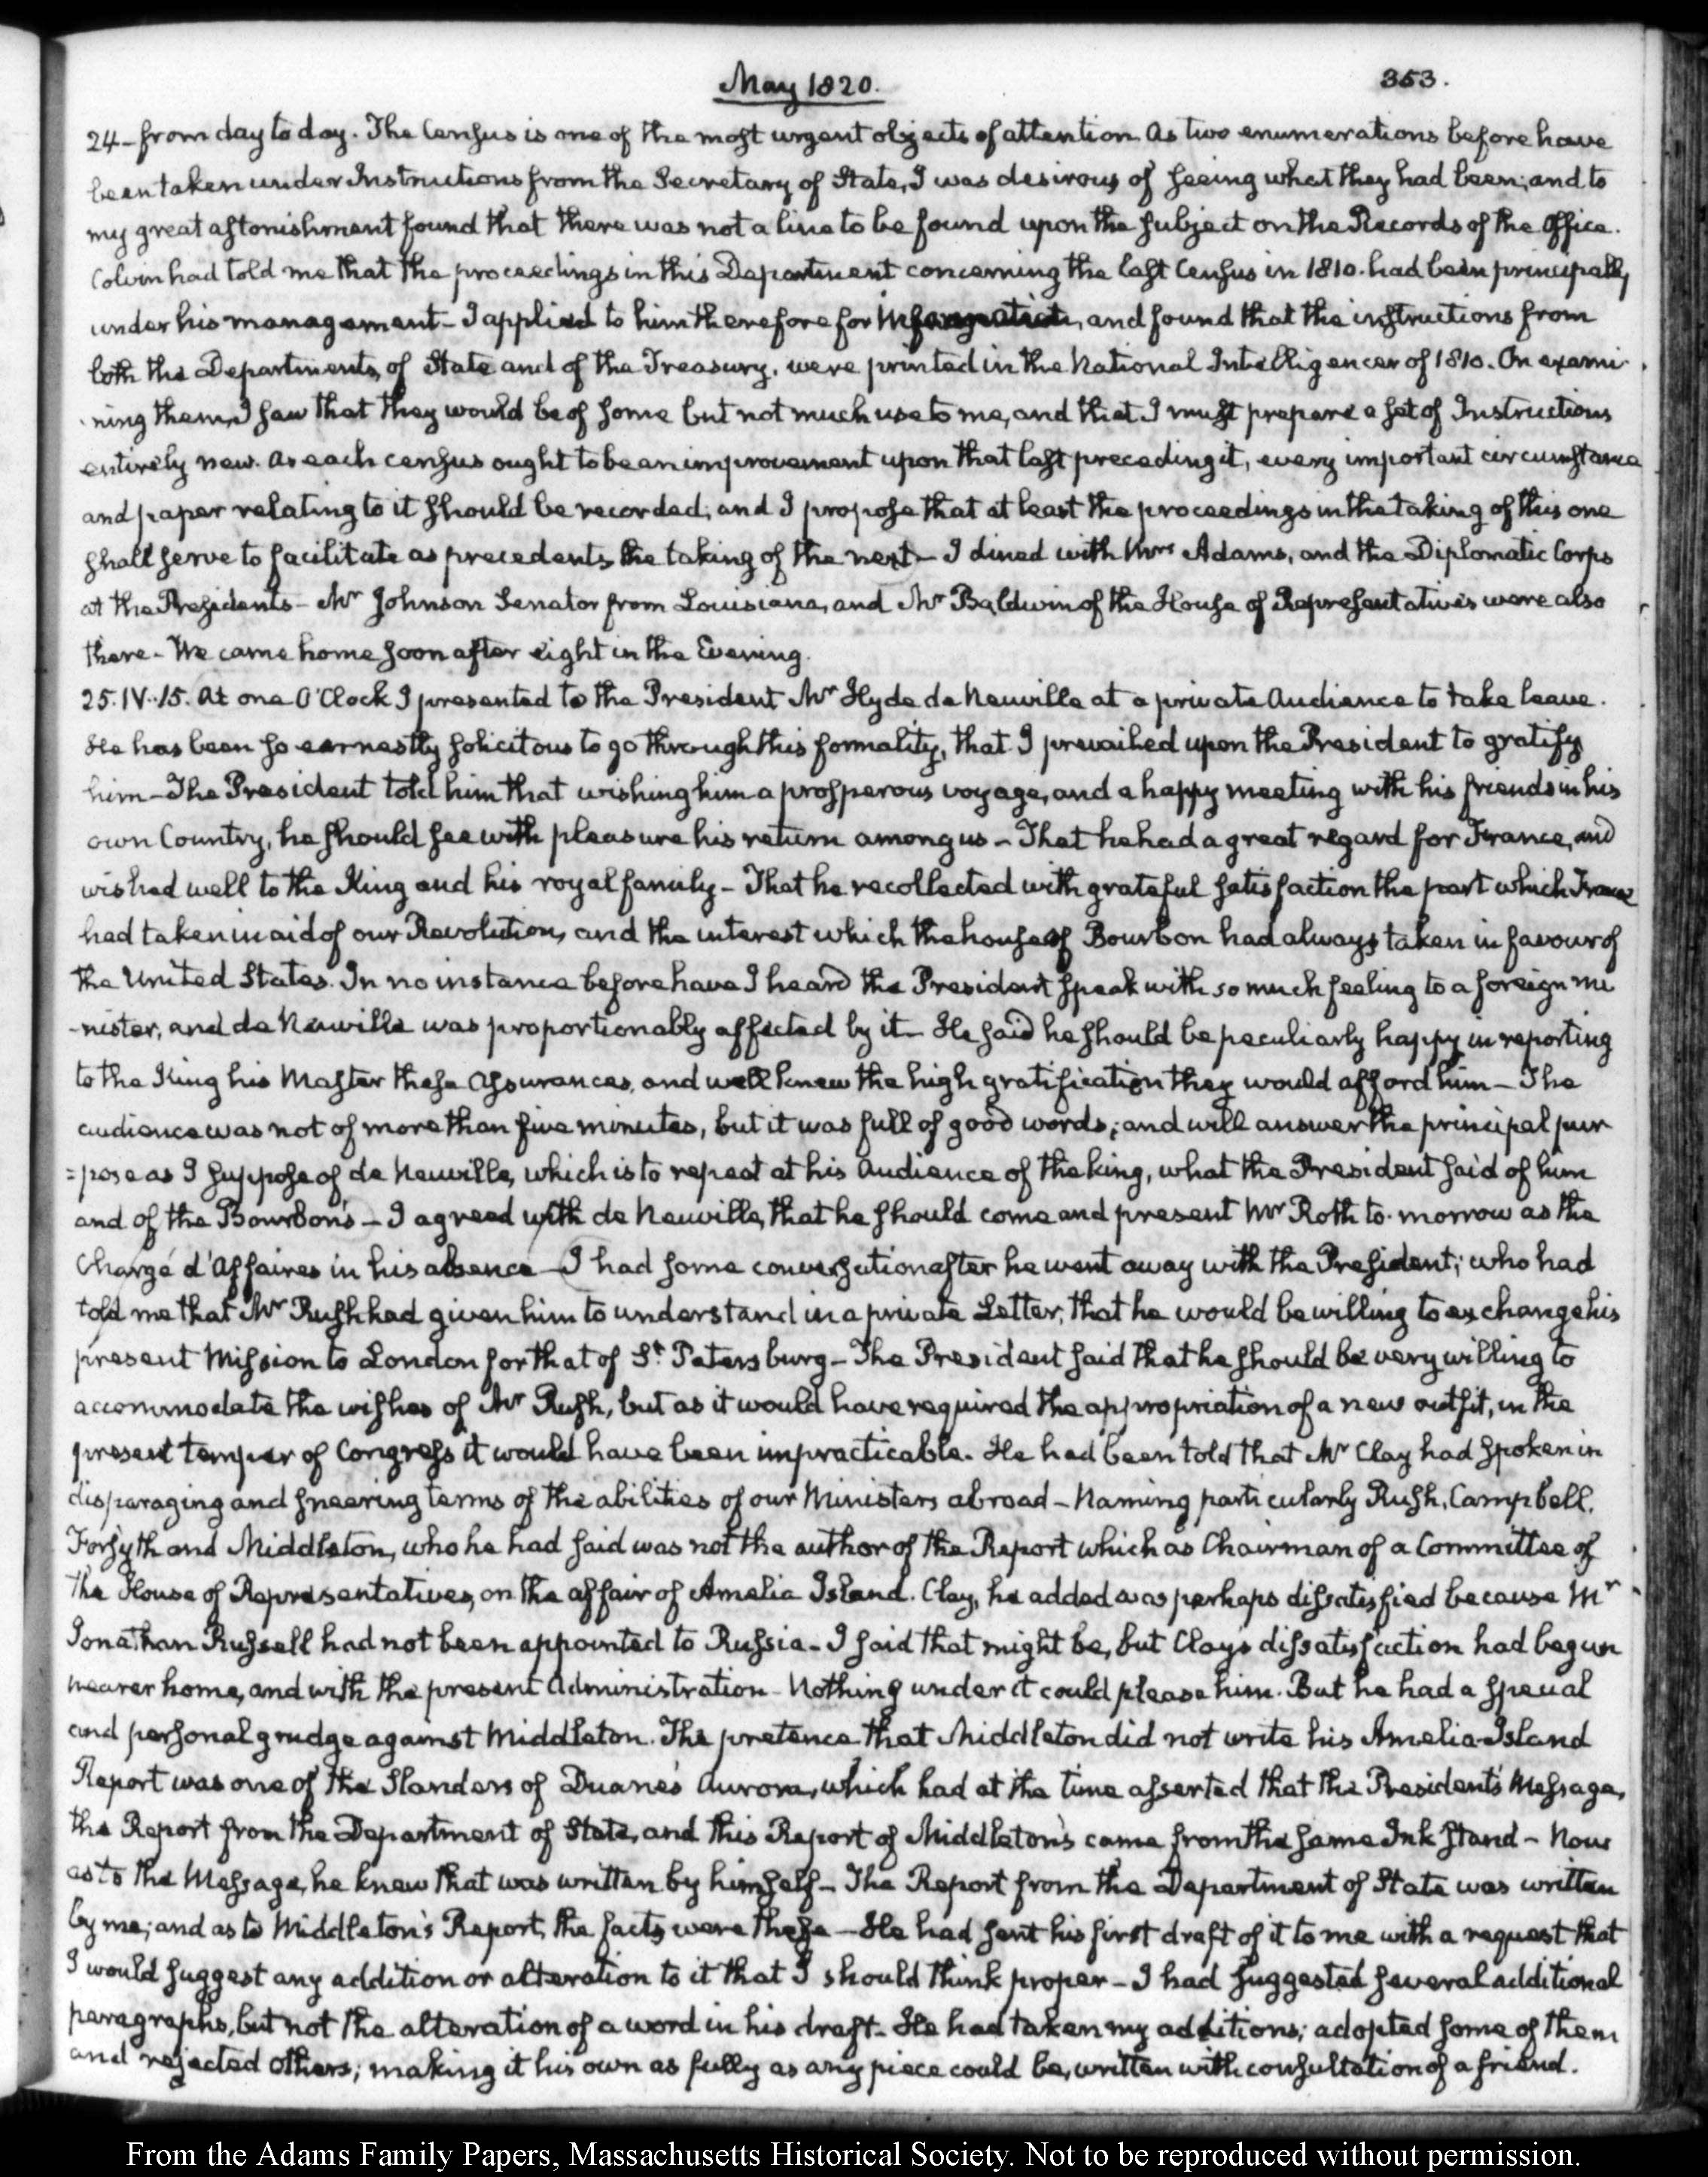 May 1820.
353.
24 - from day to day. The Census is one of the most urgent objects of attention As two enumerations before have
been taken under Instructions from the Secretary of State, I was desirous of seeing what they had been; and to
my great astonishment found that there was not a line to be found upon the subject on the Records of the Office.
Colvin had told me that the proceedings in this Department concerning the last Census in 1810. had been principally
under his management - I applied to him therefore for information, and found that the instructions from
both the Departments, of State and of the Treasury, were printed in the National Intelligencer of 1810. On exami
-ning them, I saw that they would be of some but not much use to me, and that I must prepare a set of Instructions
entirely new. As each census ought to be an improvement upon that last preceding it, every important circumstance
and paper relating to it should be recorded; and I propose that at least the proceedings in the taking of this one
shall serve to facilitate as precedents, the taking of the next - I dined with Mrs Adams, and the Diplomatic Corps
at the Presidents - Mr Johnson Senator from Louisiana, and Mr Baldwin of the House of Representatives were also
there - We came home soon after eight in the Evening.
25. IV..15. At one O'Clock I presented to the President Mr Hyde de Neuville at a private Audience to take leave.
He has been so earnestly solicitous to go through this formality, that I prevailed upon the President to gratify
him - The President told him that wishing him a prosperous voyage, and a happy meeting with his friends in his
own Country, he should see with pleasure his return among us - That he had a great regard for France, and
wished well to the King and his royal family - That he recollected with grateful satisfaction the part which France
had taken in aid of our Revolution, and the interest which the house of Bourbon had always taken in favour of
the United States. In no instance before have I heard the President speak with so much feeling to a foreign mi
-nister, and de Neuville was proportionably affected by it - He said he should be peculiarly happy in reporting
to the King his Master these assurances, and well knew the high gratification they would afford him - The
audience was not of more than five minutes, but it was full of good words; and will answer the principal pur
=pose as I suppose of de Neuville, which is to repeat at his Audience of the king, what the President said of him
and of the Bourbon's - I agreed with de Neuville, that he should come and present Mr Roth to-morrow as the
Chargé d'Affaires in his absence - I had some conversation after he went away with the President; who had
told me that Mr Rush had given him to understand in a private Letter, that he would be willing to exchange his
present Mission to London for that of St. Petersburg - The President said that he should be very willing to
accommodate the wishes of Mr Rush, but as it would have required the appropriation of a new outfit, in the
present temper of Congress it would have been impracticable. He had been told that Mr Clay had spoken in
disparaging and sneering terms of the abilities of our Ministers abroad - Naming particularly Rush, Campbell,
Forsyth and Middleton, who he had said was not the author of the Report which as Chairman of a Committee of
the House of Representatives, on the affair of Amelia Island. Clay, he added was perhaps dissatisfied because Mr
Jonathan Russell had not been appointed to Russia - I said that might be, but Clay's dissatisfaction had begun
nearer home, and with the present Administration - Nothing under it could please him. But he had a special
and personal grudge against Middleton. The pretence that Middleton did not write his Amelia-Island
Report was one of the Slanders of Duane's Aurora, which had at the time asserted that the President's Message,
the Report from the Department of State, and this Report of Middleton's came from the same Ink stand - Now
as to the Message, he knew that was written by himself - The Report from the Department of State was written
by me; and as to Middleton's Report, the facts were these - He had sent his first draft of it to me with a request that
I would suggest any addition or alteration to it that I should think proper - I had suggested several additional
paragraphs, but not the alteration of a word in his draft - He had taken my additions; adopted some of them
and rejected others; making it his own as fully as any piece could be, written with consultation of a friend.
From the Adams Family Papers, Massachusetts Historical Society. Not to be reproduced without permission.